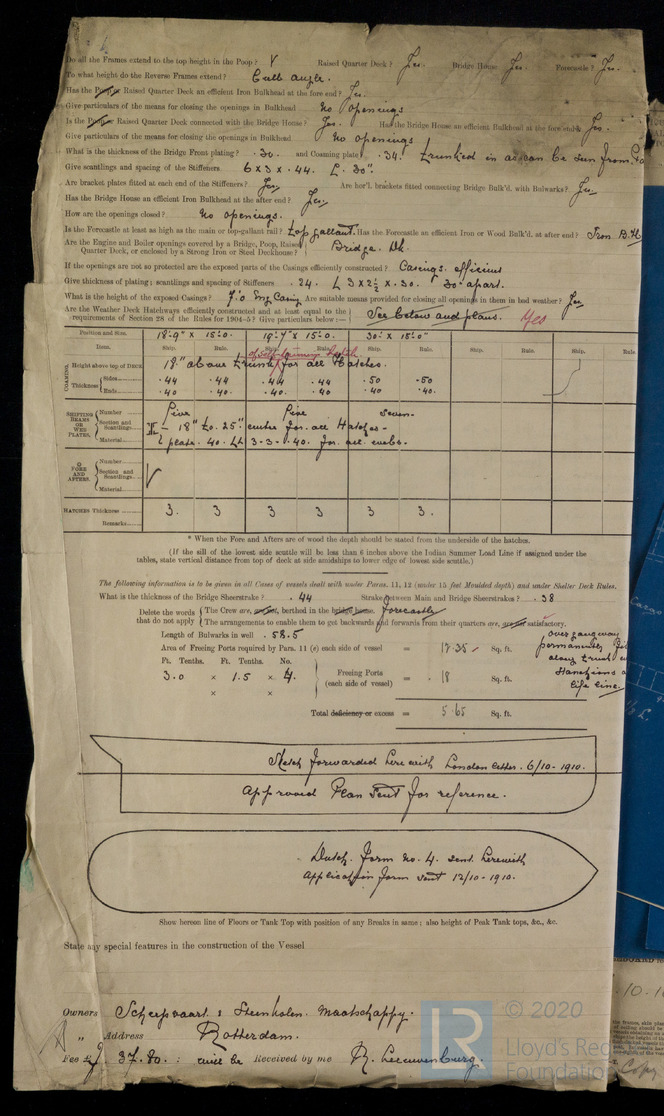 Do all the Frames extend to the top height in the Poop? V Raised Quarter Deck? Yes Bridge House Yes Forecastle? Yes
To what height do the Reverse Frames extend? Bulb angle.
Has the Poop or Raised Quarter Deck an efficient Iron Bulkhead at the fore end? Yes
Give particulars of the means for closing the openings in Bulkhead no openings
Is the Poop or Raised Quarter Deck connected with the Bridge House? Yes Has the Bridge House an efficient Bulkhead at the fore end? Yes
Give particulars of the means for closing the openings in Bulkhead No openings
What is the thickness of the Bridge Front plating? .30. and Coaming plate .34. trunked in as can be seen from
Give scantlings and spacing of the Stiffeners. 6 x 3 x .44. 30".
Are bracket plates fitted at each end of the Stiffeners? Yes Are hor'l. brackets fitted connecting Bridge Bulk'd. with Bulwarks? Yes
Has the Bridge House an efficient Iron Bulkhead at the after end? Yes
How are the openings closed? No openings.
Is the Forecastle at least as high as the main or top-gallant rail? top gallant. Has the Forecastle an efficient Iron or Wood Bulk'd. at after end? Iron B.H
Are the Engine and Boiler openings covered by a Bridge, Poop, Raised
Quarter Deck, or enclosed by a Strong Iron or Steel Deckhouse? Bridge Dk.
If the openings are not so protected are the exposed parts of the Casings efficiently constructed? Casings efficient
Give thickness of plating; scantlings and spacing of Stiffeners .24. L 3 x 2½ x .30. 30" apart.
What is the height of the exposed Casings? 7'.0 Eng Casing Are suitable means provided for closing all openings in them in bad weather? Yes
Are the Weather Deck Hatchways efficiently constructed and at least equal to the
requirements of Section 28 of the Rules for 1904-5? Give particulars below:— See below and plans. Yes
Position and Size. 18'-9" x 15'.0. 19'-7" x 15'.0. 30' x 15'.0"
Item. Ship. Rule. Ship. Rule. Ship. Rule. Ship. Rule. Ship. Rule.
of self trimming hatch
COAMING. Height above top of DECK 18" above trunk for all Hatches.
Thickness Sides .44 .44 .44 .44 .50 .50
Ends .40 .40 .40. .40 .40 .40.
SHIFTING BEAMS OR WEB PLATES. Number Five Five Seven
Section and Scantlings 18" to 25" for all Hatches
Material plate .40. 3-3-.40 for all webs.
FORE AND AFTERS. Number
Section and Scantlings
Material
HATCHES Thickness 3. 3 3 3 3 3.
Remarks
* When the Fore and Afters are of wood the depth should be stated from the underside of the hatches.
(If the sill of the lowest side scuttle will be less than 6 inches above the Indian Summer Load Line if assigned under the
tables, state vertical distance from top of deck at side amidships to lower edge of lowest side scuttle.)
The following information is to be given in all Cases of vessels dealt with under Paras. 11, 12 (under 15 feet Moulded depth) and under Shelter Deck Rules.
What is the thickness of the Bridge Sheerstrake? .44 Strake between Main and Bridge Sheerstrakes? .38
Delete the words that do not apply The Crew are, are not, berthed in the bridge house. forecastle
The arrangements to enable them to get backwards and forwards from their quarters are, are not satisfactory.
Length of Bulwarks in well .58.5 over gangway
Area of Freeing Ports required by Para. 11 (e) each side of vessel = 12.35 Sq. ft. permanently
Ft. Tenths. Ft. Tenths. No. along trunk
3.0 x 1.5 x 4. Freeing Ports (each side of vessel) = 18 Sq. ft. Stanchions
x x life line.
Total deficiency or excess = 5.65 Sq. ft.
Sketch forwarded herewith London letter. 6/10-1910.
Approved Plan sent for reference.
Dutch. Form No. 4. sent herewith
Application form sent 12/10-1910.
Show hereon line of Floors or Tank Top with position of any Breaks in same; also height of Peak Tank tops, &c., &c.
State any special features in the construction of the Vessel
Owners Scheepvaart & Steenkolen. Maatschappy.
" Address Rotterdam.
Fee 37.80.: will be Received by me R. Leeuwenburg.
LR © 2020
Lloyd's Reg
Foundation